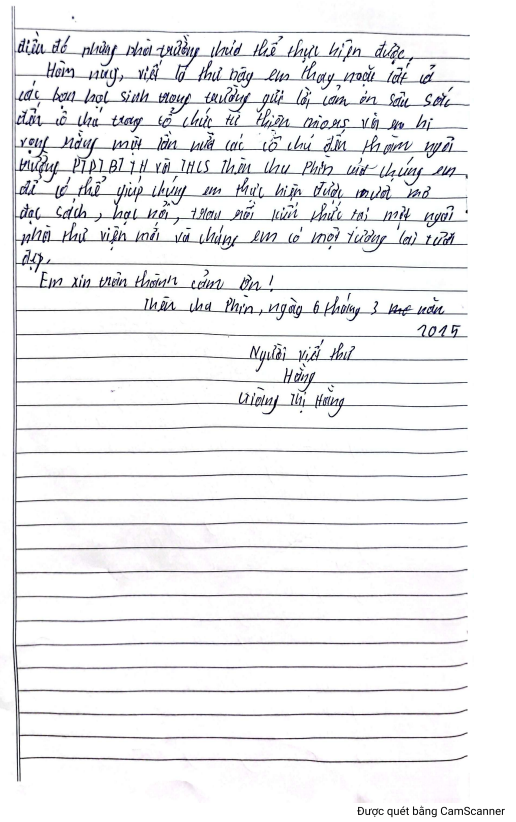 điều đó nhưng nhà trường chưa thể thực hiện được.
Hôm nay, viết lá thư này em thay mặt tất cả
các bạn học sinh trong trường gửi lời cảm ơn sâu sắc
đến cô chú trong tổ chức từ thiện và em hi
vọng rằng một lần nữa các cô chú đến thăm ngôi
trường PTDTBT TH và THCS Thèn Chu Phìn của chúng em.
để có thể giúp chúng em thực hiện được ước mơ
đọc sách, học hỏi, trau dồi kiến thức tại một ngôi
nhà thư viện mới và chúng em có một tương lai tươi
đẹp.
Em xin trân thành cảm ơn!
Thèn Chu Phìn, ngày 6 tháng 3 năm
2025
Người viết thư
Hằng
Vường Thị Hằng
Được quét bằng CamScanner